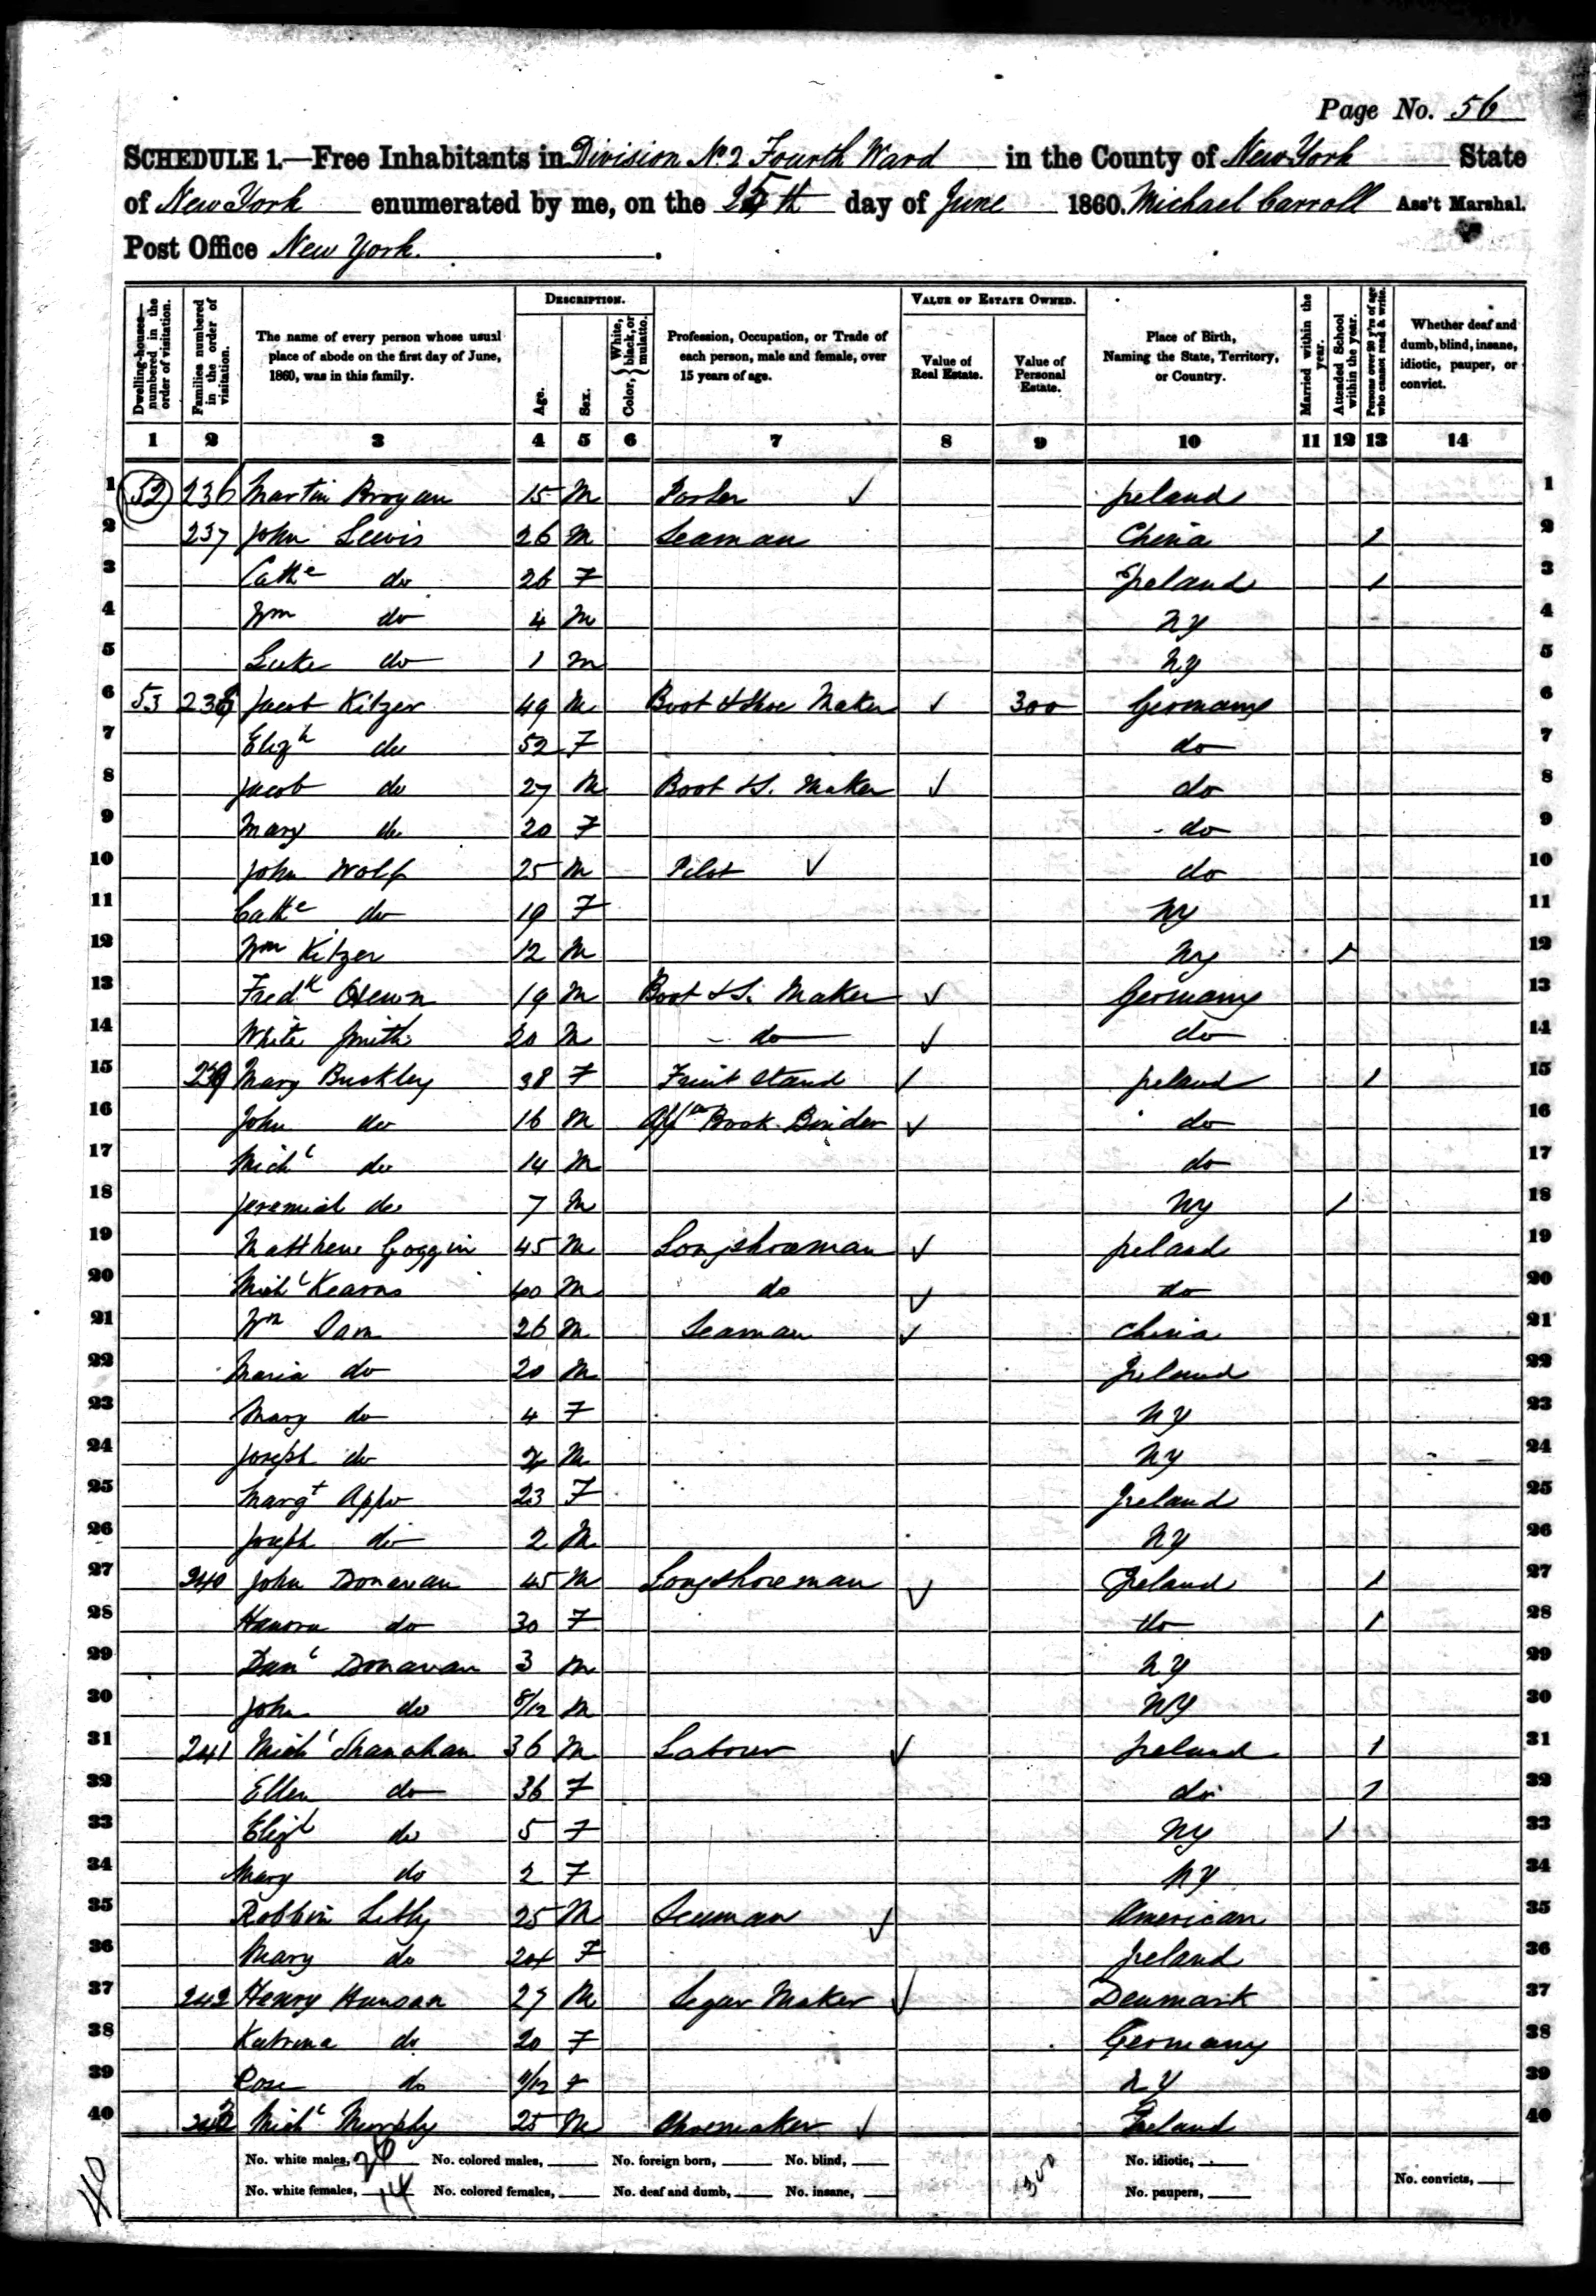 Page No. 56
SCHEDULE 1.—Free Inhabitants in Division No. 2 Fourth Ward in the County of New York State
of New York enumerated by me, on the 25th day of June 1860. Michael Carroll Ass't Marshal.
Post Office New York.
Dwelling-houses—numbered in the order of visitation. Families numbered in the order of visitation. The name of every person whose usual place of abode on the first day of June, 1860, was in this family. Description. Age. Sex. Color, White, black, or mulatto. Profession, Occupation, or Trade of each person, male and female, over 15 years of age. Value of Estate Owned. Value of Real Estate. Value of Personal Estate. Place of Birth, Naming the State, Territory, or Country. Married within the year. Attended School within the year. Persons over 20 y'rs of age who cannot read & write. Whether deaf and dumb, blind, insane, idiotic, pauper, or convict.
1 2 3 4 5 6 7 8 9 10 11 12 13 14
1 52 236 Martin Brogan 15 M Porter ✓ Ireland 1
2 237 John Lewis 26 M Seaman China 1 2
3 Cathe do 26 F Ireland 1 3
4 Wm do 4 M NY 4
5 Luke do 1 M NY 5
6 53 238 Jacob Kitzer 49 M Boot & Shoe Maker ✓ 300 Germany 6
7 Elizh do 52 F do 7
8 Jacob do 27 M Boot & S. Maker ✓ do 8
9 Mary do 20 F do 9
10 John Wolf 25 M Pilot ✓ do 10
11 Cathe do 19 F NY 11
12 Wm Kitzer 12 M NY 1 12
13 Fredk 19 M Boot & S. Maker ✓ Germany 13
14 White Smith 20 M do ✓ do 14
15 239 Mary Buckley 38 F Fruit Stand ✓ Ireland 1 15
16 John do 16 M Book Binder ✓ do 16
17 Michl do 14 M do 17
18 Jeremiah do 7 M NY 1 18
19 Matthew Goggin 45 M Longshoreman ✓ Ireland 19
20 Michl Kearns 40 M do ✓ do 20
21 Wm 26 M Seaman ✓ China 21
22 Maria do 20 M Ireland 22
23 Mary do 4 F NY 23
24 Joseph do 2 M NY 24
25 Margt Appo 23 F Ireland 25
26 Joseph do 2 M NY 26
27 240 John Donavan 45 M Longshoreman ✓ Ireland 1 27
28 Hanora do 30 F do 1 28
29 Danl Donavan 3 M NY 29
30 John do 8/12 M NY 30
31 241 Michl Shanahan 36 M Labour ✓ Ireland 1 31
32 Ellen do 36 F do 1 32
33 Elizh do 5 F NY 1 33
34 Mary do 2 F NY 34
35 Robbin 25 M Seaman ✓ American 35
36 Mary do 24 F Ireland 36
37 242 Henry Hansan 27 M Segar Maker ✓ Denmark 37
38 Katrina do 20 F Germany 38
39 Rose do F NY 39
40 243 Michl Murphy 25 M Shoemaker ✓ Ireland 40
No. white males, 26 No. colored males, No. foreign born, No. blind, 300 No. idiotic,
No. white females, 14 No. colored females, No. deaf and dumb, No. insane, No. paupers, No. convicts,
40